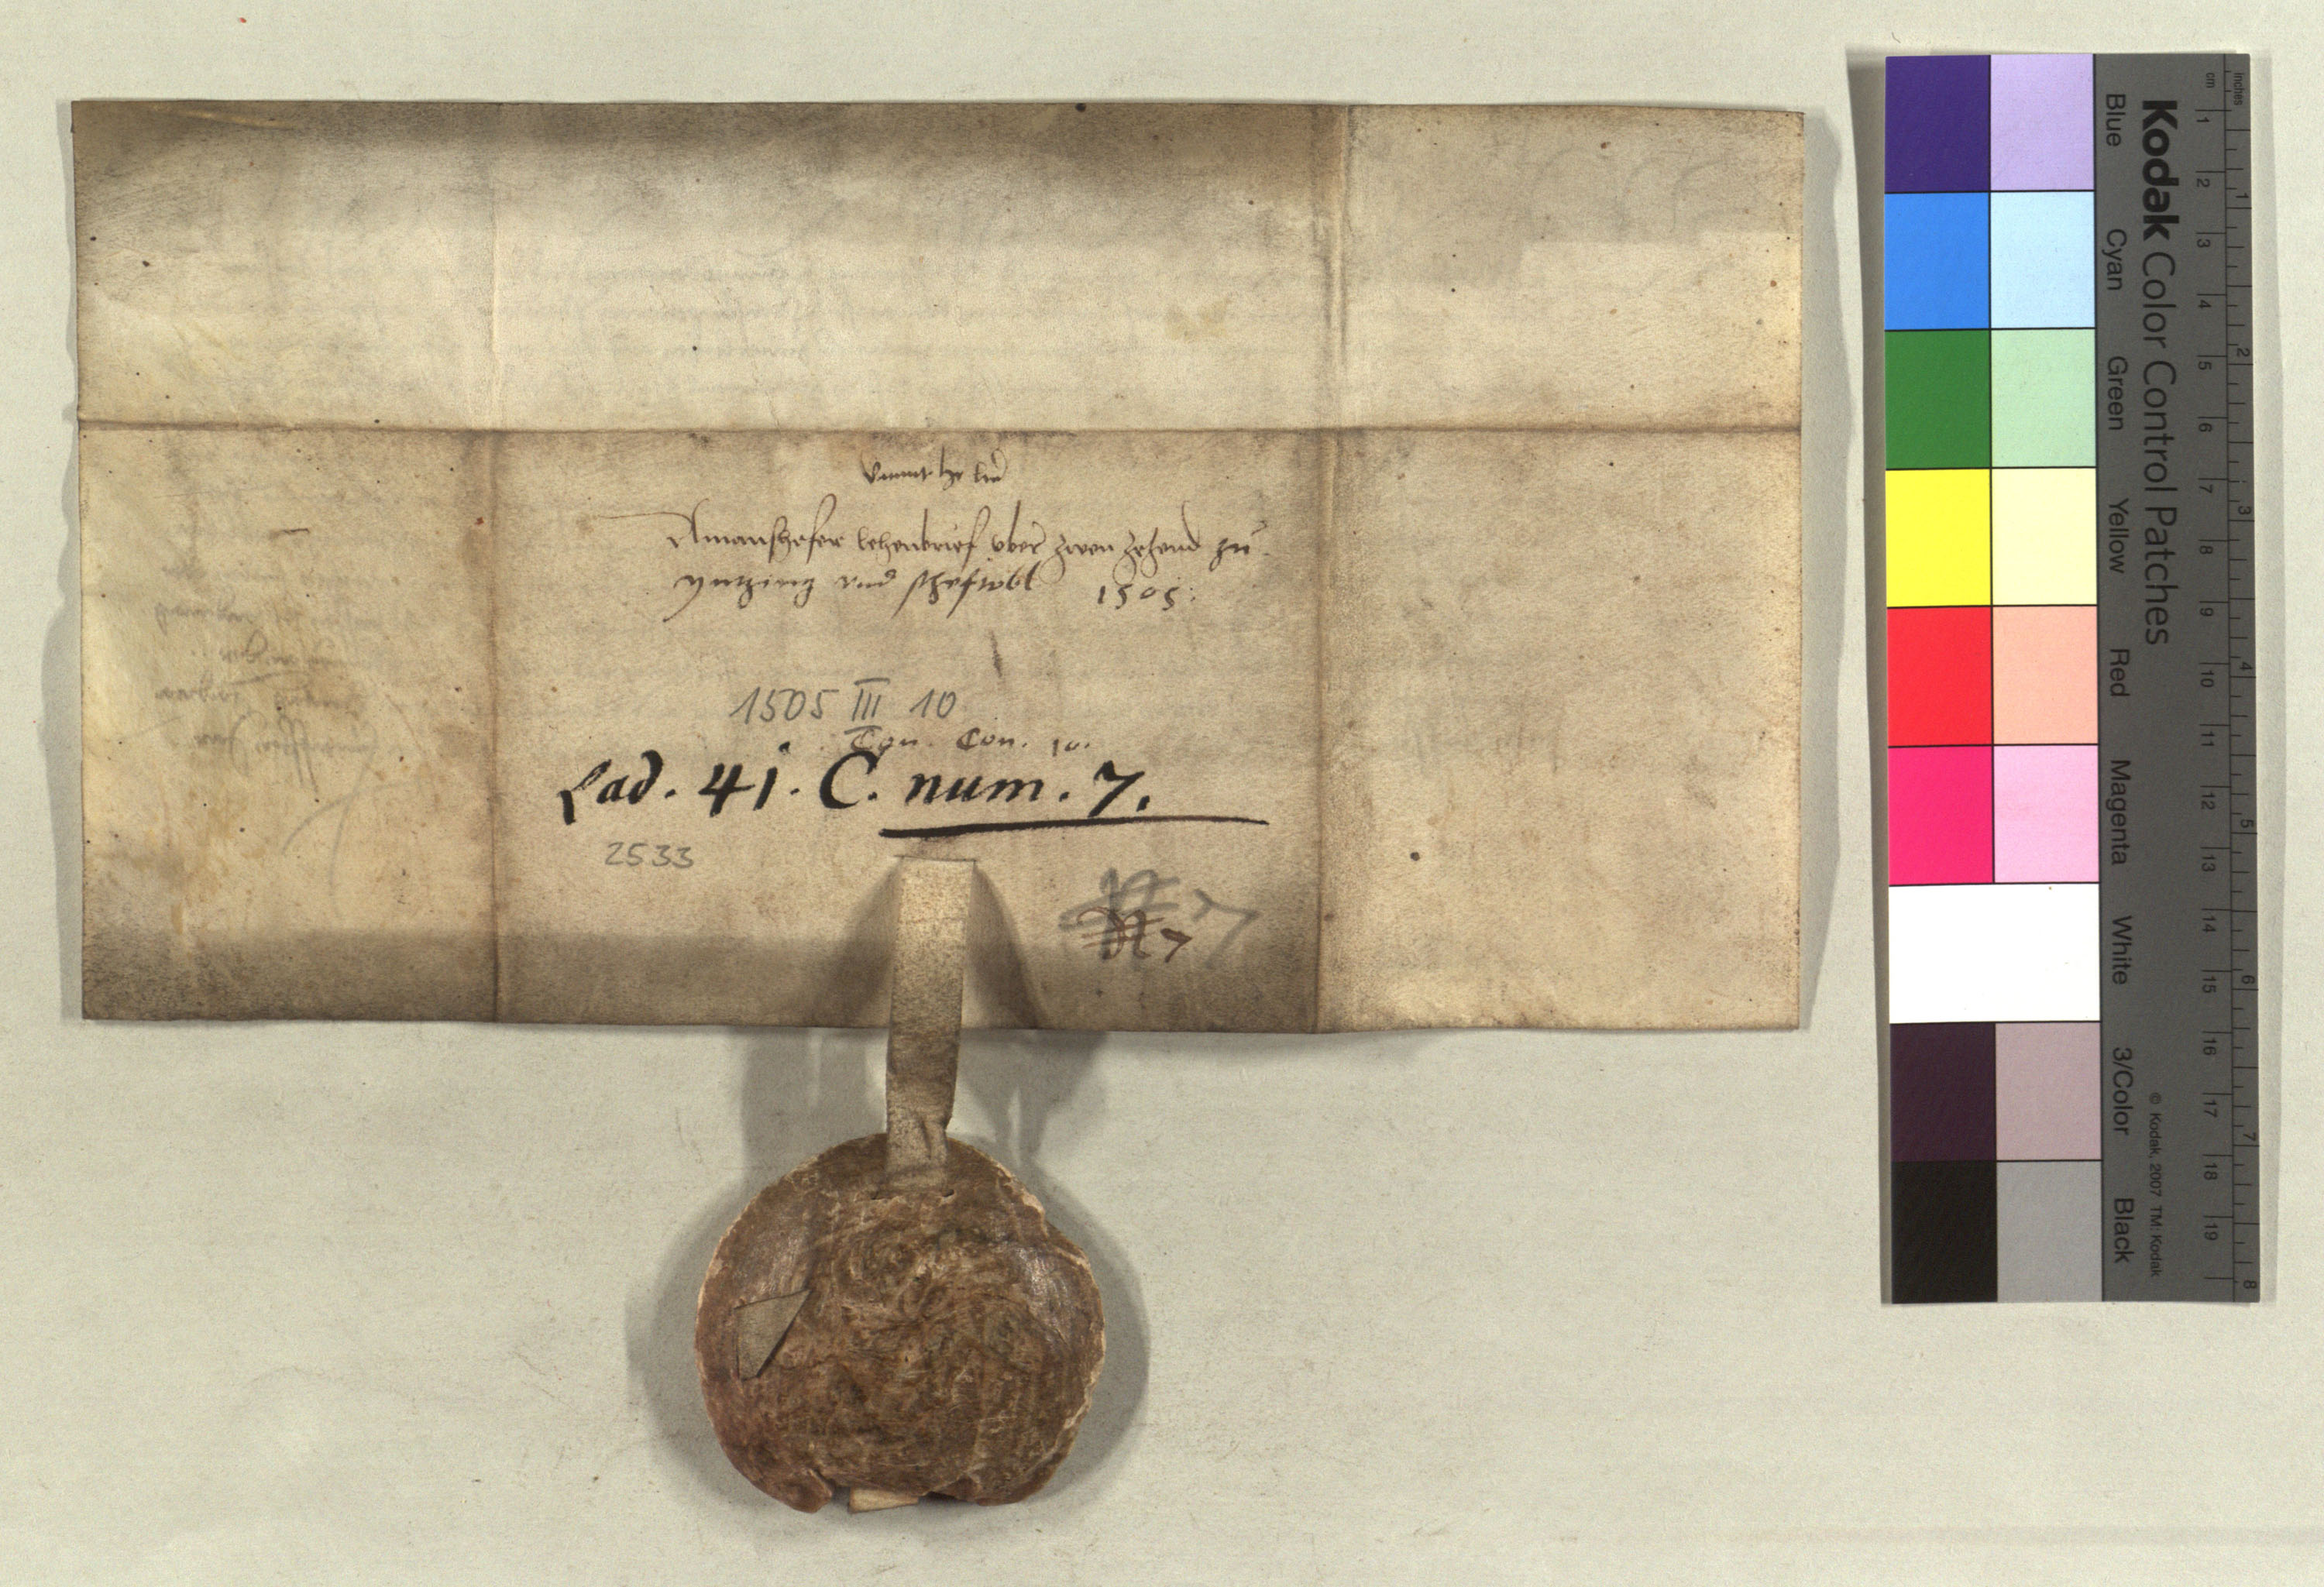 Amanshofer lehenbrief vber zwen zehend zu
yntzing vnd 1505
1505 III 10
Con. Con. 10.
Lad. 41. C. num. 7.
2533
N 7
Kodak Color Control Patches
Blue Cyan Green Yellow Red Magenta White 3/Color Black
© Kodak, 2007 TM: Kodak
cm 1 2 3 4 5 6 7 8 9 10 11 12 13 14 15 16 17 18 19
inches 1 2 3 4 5 6 7 8